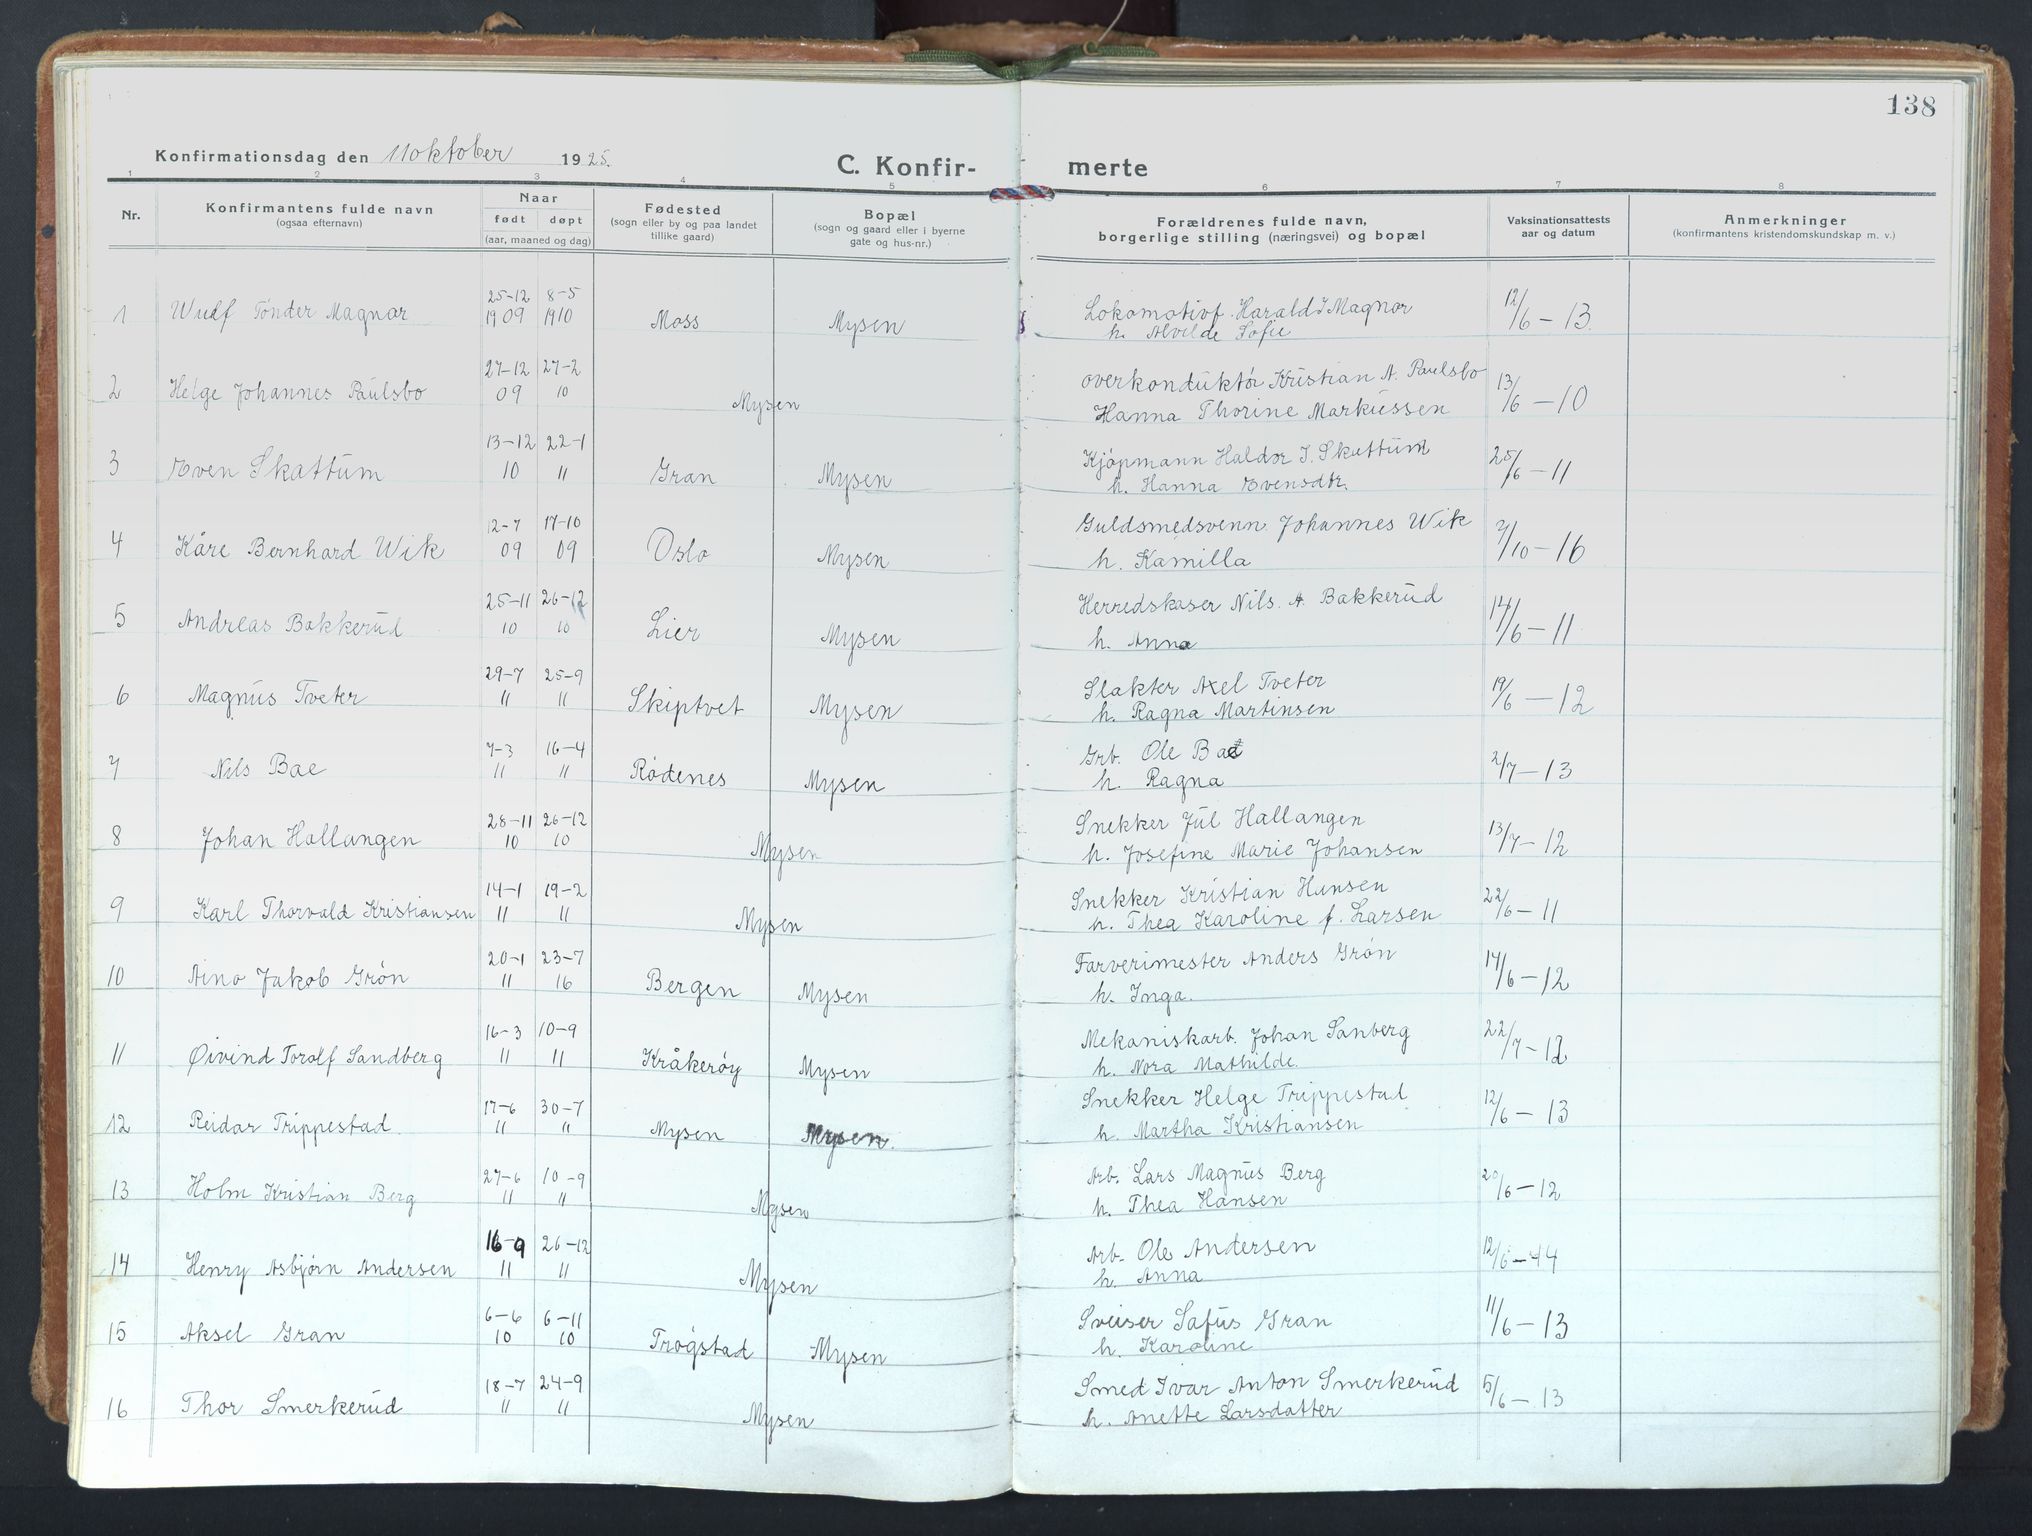 138
Konfirmationsdag den 11 oktober 1925.
C. Konfirmerte
1 2 3 4 5 6 7 8
Nr.
Konfirmantens fulde navn
(ogsaa efternavn)
Naar
født døpt
(aar, maaned og dag)
Fødested
(sogn eller by og paa landet
tillike gaard)
Bopæl
(sogn og gaard eller i byerne
gate og hus-nr.)
Forældrenes fulde navn,
borgerlige stilling (næringsvei) og bopæl
Vaksinationsattests
aar og datum
Anmerkninger
(konfirmantens kristendomskundskap m. v.)
25-12 8-5
1 Wulf Tønder Magnar 1909 1910 Moss Mysen Lokomotivf. Harald J Magnar 12/6-13.
h. Alvilde Sofie
27-12 27-2
2 Helge Johannes Paulsbo 09 10 Mysen overkonduktør Kristian A. Paulsbo 13/6-10
Hanna Thorine Markussen
13-12 22-1
3 Even Skattum 10 11 Gran Mysen Kjøpmann Haldor J. Skattum 25/6-11
h. Hanna Evensdtr.
12-7 17-10
4 Kåre Bernhard Wik 09 09 Oslo Mysen Guldsmedsvenn Johannes Wik 7/10-16
h. Kamilla
25-11 26-12
5 Andreas Bakkerud 10 10 Lier Mysen Herredskaser Nils. A. Bakkerud 14/6-11
h. Anna
29-7 25-9
6 Magnus Tveter 11 11 Skiptvet Mysen Slakter Axel Tveter 19/6-12
h. Ragna Martinsen
7-3 16-4
7 Nils Bae 11 11 Rødenes Mysen Grb. Ole Bae 2/7-13
h. Ragna
28-11 26-12
8 Johan Hallangen 10 10 Mysen Snekker Jul Hallangen 13/7-12
h. Josefine Marie Johansen
14-1 19-2
9 Karl Thorvald Kristiansen 11 11 Mysen Snekker Kristian Hansen 22/6-11
h. Thea Karoline f. Larsen
20-1 23-7
10 Aino Jakob Grøn 11 16 Bergen Mysen Farverimester Anders Grøn 17/6-12
h. Inga.
16-3 10-9
11 Øivind Toralf Sandberg 11 11 Kråkerøy Mysen Mekaniskarb. Johan Sanberg 22/7-12
h. Nora Mathilde.
17-6 30-7
12 Reidar Trippestad 11 11 Mysen Mysen. Snekker Helge Trippestad 12/6-13
h. Martha Kristiansen
27-6 10-9
13 Holm Kristian Berg 11 11 Mysen Arb. Lars Magnus Berg 20/6-12
h. Thea Hansen
16-9 26-12
14 Henry Asbjørn Andersen 11 11 Mysen Arb. Ole Andersen 12/6-44
h. Anna
6-6 6-11
15 Aksel Gran 10 10 Trøgstad Mysen Sveiser Safus Gran 11/6-13
h. Karoline
18-7 24-9
16 Thor Smerkerud 11 11 Mysen Smed Ivar Anton Smerkerud 5/6-13
h. Anette Larsdatter